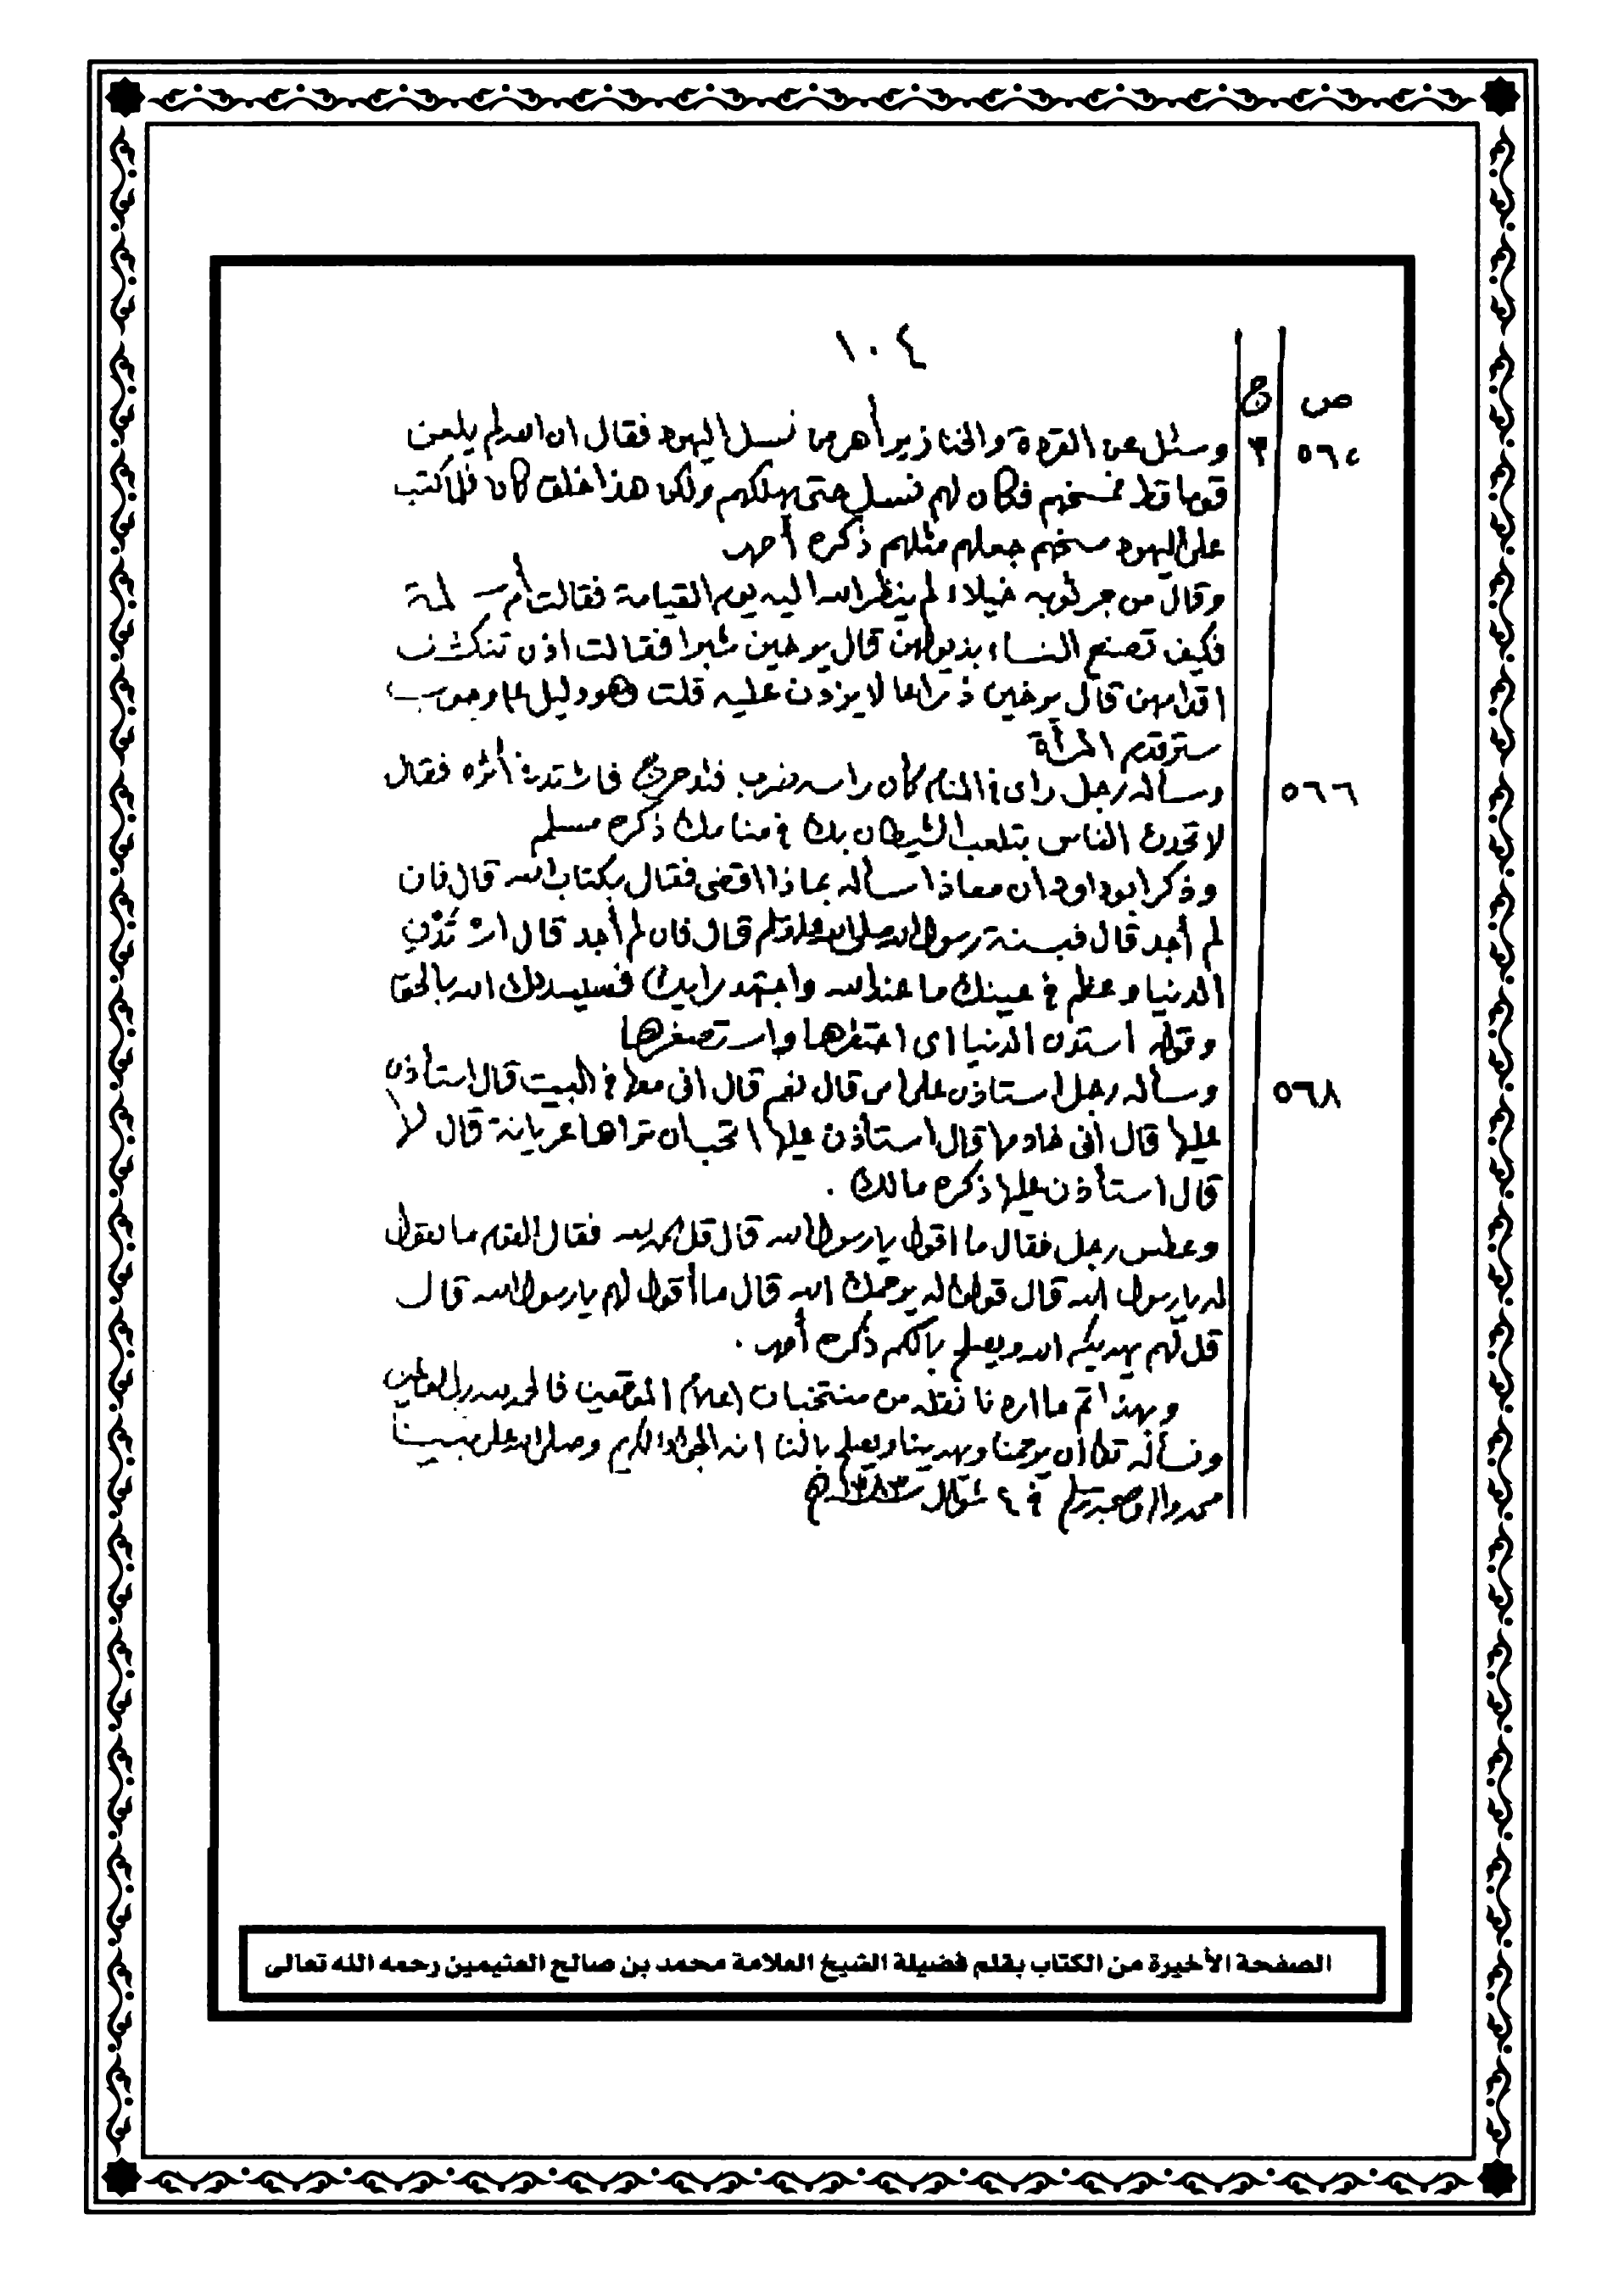 ١٠٤
ص ج
٥٦٤ ٣ وسئل عن القردة والخنازير أهي من نسل اليهود فقال ان الله لم يلعن
قوما قط فمسخهم فكان لهم نسل حتى يهلكهم ولكن هذا خلق كان فلما كتب
على اليهود مسخهم جعلهم مثلهم ذكره أحمد
وقال من جر ثوبه خيلاء لم ينظر الله اليه يوم القيامة فقالت أم سلمة
فكيف تصنع النساء بذيولهن قال يرخين شبرا فقالت اذن تنكشف
اقدامهن قال يرخين ذراعا لا يزدن عليه قلت وهو دليل على وجوب
ستر قدم المرأة
٥٦٦ وسأله رجل رأى في المنام كأن راسه ضرب فتدحرج فاشتد في أثره فقال
لا تحدث الناس بتلعب الشيطان بك في منامك ذكره مسلم
وذكر ابو داود ان معاذا سأله بماذا اقضى فقال بكتاب الله قال فان
لم أجد قال فبسنة رسول الله صلى الله عليه وسلم قال فان لم أجد قال استدن
الدنيا وعظم في عينك ما عند الله واجتهد رايك فسيسددك الله بالحق
وقوله استدن الدنيا اى احتقرها واستصغرها
٥٦٨ وسأله رجل استاذن على امى قال نعم قال انى معها في البيت قال استأذن
عليها قال انى خادمها قال استأذن عليها اتحب ان تراها عريانة قال لا
قال استأذن عليها ذكره مالك .
وعطس رجل فقال ما اقول يا رسول الله قال قل الحمد لله فقال القوم ما نقول
له يا رسول الله قال قولوا له يرحمك الله قال ما أقول لهم يا رسول الله قال
قل لهم يهديكم الله ويصلح بالكم ذكره أحمد .
وبهذا تم ما اردنا نقله من منتخبات إعلام الموقعين فالحمد لله رب العالمين
ونسأله تعالى أن يرحمنا ويهدينا ويصلح بالنا انه الجواد الكريم وصلى الله على نبينا
محمد وآله وصحبه وسلم في ٤ شوال سنة ١٣٨٣هـ
الصفحة الأخيرة من الكتاب بقلم فضيلة الشيخ العلامة محمد بن صالح العثيمين رحمه الله تعالى